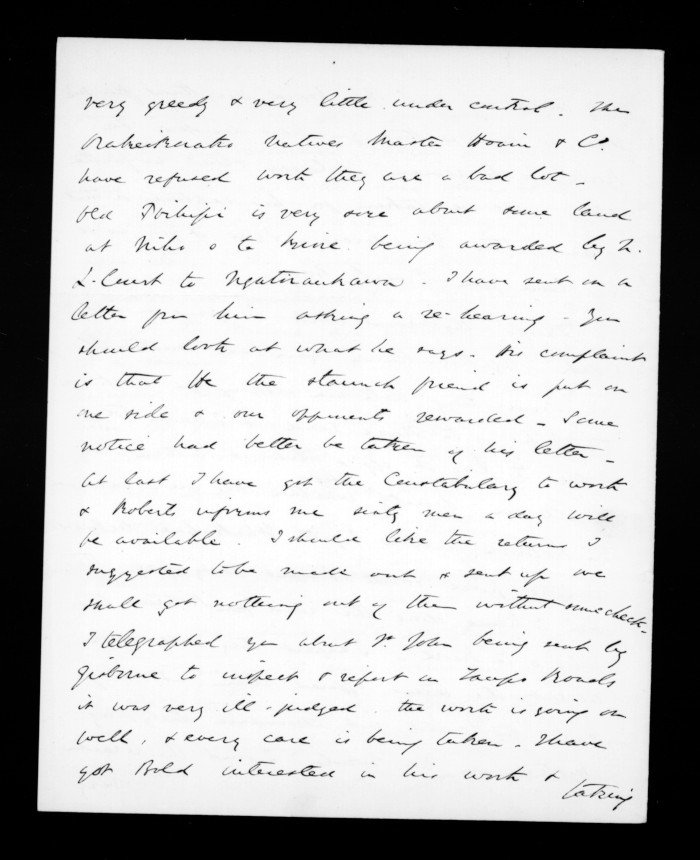 very greedy & very little under control. The
Orakeikorako Natives Master Hoani & Co.
have refused work they are a bad lot -
Old Poihipi is very sore about some land
at Niho o te Kiore being awarded by N.
L. Court to Ngatiraukawa. I have sent in a
letter from him asking a re-hearing - You
should look at what he says. His complaint
is that He the staunch friend is put on
one side & our opponents rewarded - Some
notice had better be taken of his letter -
At last I have got the Constabulary to work
& Roberts informs me sixty men a day will
be available. I should like the returns I
suggested to be made out & sent up we
shall get nothing out of them without some check -
I telegraphed you about St. John being sent by
Gisborne to inspect & report on Taupo Roads
it was very ill-judged. the work is going on
well, & every care is being taken. I have
got Bold interested in his work &
taking